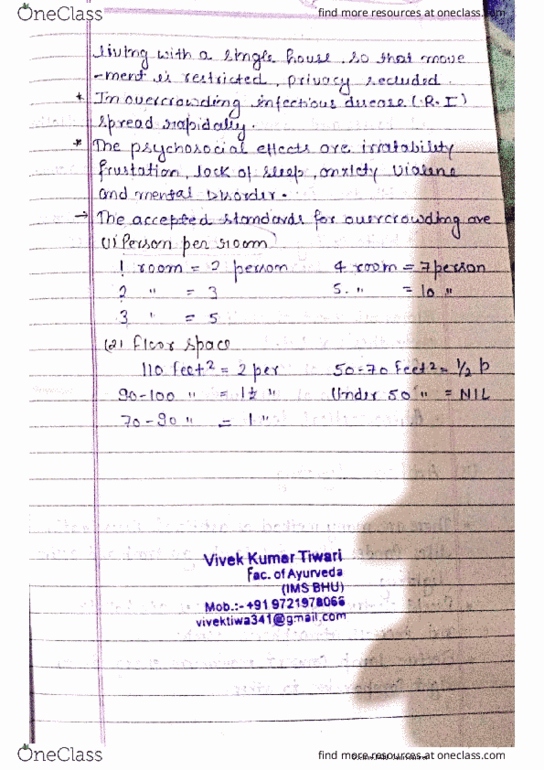 OneClass
find more resources at oneclass.com
living with a single house, so that move
-ment is restricted, privacy secluded.
* In overcrowding infectious disease (R.I)
spread rapidally.
* The psychosocial effects are irratability
frustation, lack of sleep, anxiety violene
and mental Disorder.
→ The accepted standards for overcrowding are
(1) Person per room
1 room = 2 person 4 room = 7 person
2 " = 3 5. " = 10 "
3 " = 5
(2) floor space
110 feet² = 2 per 50-70 feet² = 1/2 p
90-100 " = 1½ " Under 50 " = NIL
70-90 " = 1 "
Vivek Kumar Tiwari
Fac. of Ayurveda
(IMS BHU)
Mob.:- +91 9721978066
vivektiwa341@gmail.com
OneClass
find more resources at oneclass.com